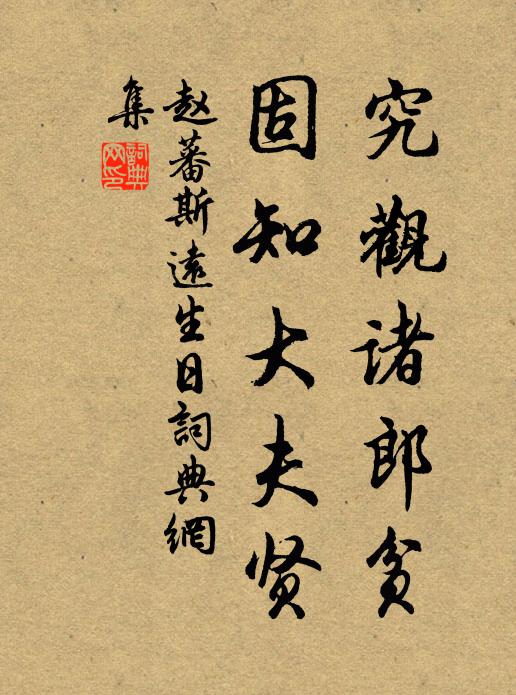 究觀诸郎贫
固知大夫贤
赵蕃斯遠生日詞典網
集
詞典網印